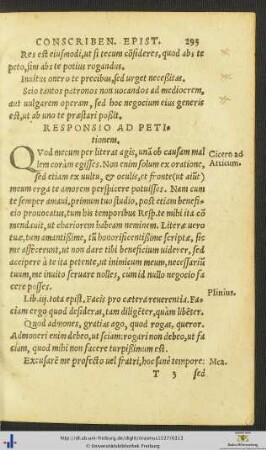 CONSCRIBEN. EPIST. 295
Res est eiusmodi, ut si tecum cõsideres, quod abs te
peto, sim abs te potius rogandus.
Inuitus onero te precibus, sed urget necessitas.
Scio tantos patronos non uocandos ad mediocrem,
aut uulgarem operam, sed hoc negocium eius generis
est, ut ab uno te præstari possit.
RESPONSIO AD PETI-
tionem.
QVod mecum per literas agis, unà ob causam mal
lem coràm egisses. Non enim solum ex oratione,
sed etiam ex uultu, & oculis, et fronte (ut aiũt)
meum erga te amorem perspicere potuisses. Nam cum
te semper amaui, primum tuo studio, post etiam benefi-
cio prouocatus, tum his temporibus Resp. te mihi ita cõ
mendauit, ut chariorem habeam neminem. Literæ uero
tuæ, tum amantissimè, tũ honorificentissimè scriptæ, sic
me affecerunt, ut non dare tibi beneficium uiderer, sed
accipere à te ita petente, ut inimicum meum, necessariũ
tuum, me inuito seruare nolles, cum id nullo negocio fa
cere posses.
Cicero ad
Atticum.
Lib. iij. tota epist. Facis pro cætera reuerentia. Fa-
ciam ergo quod desideras, tam diligẽter, quàm libẽter.
Plinius.
Quod admones, gratias ago, quod rogas, queror.
Admoneri enim debeo, ut sciam: rogari non debeo, ut fa
ciam, quod mihi non facere turpissimum est.
Excusarẽ me profecto uel fratri, hoc sanè tempore:
Mea.
T 3 sed
© Universitätsbibliothek Freiburg